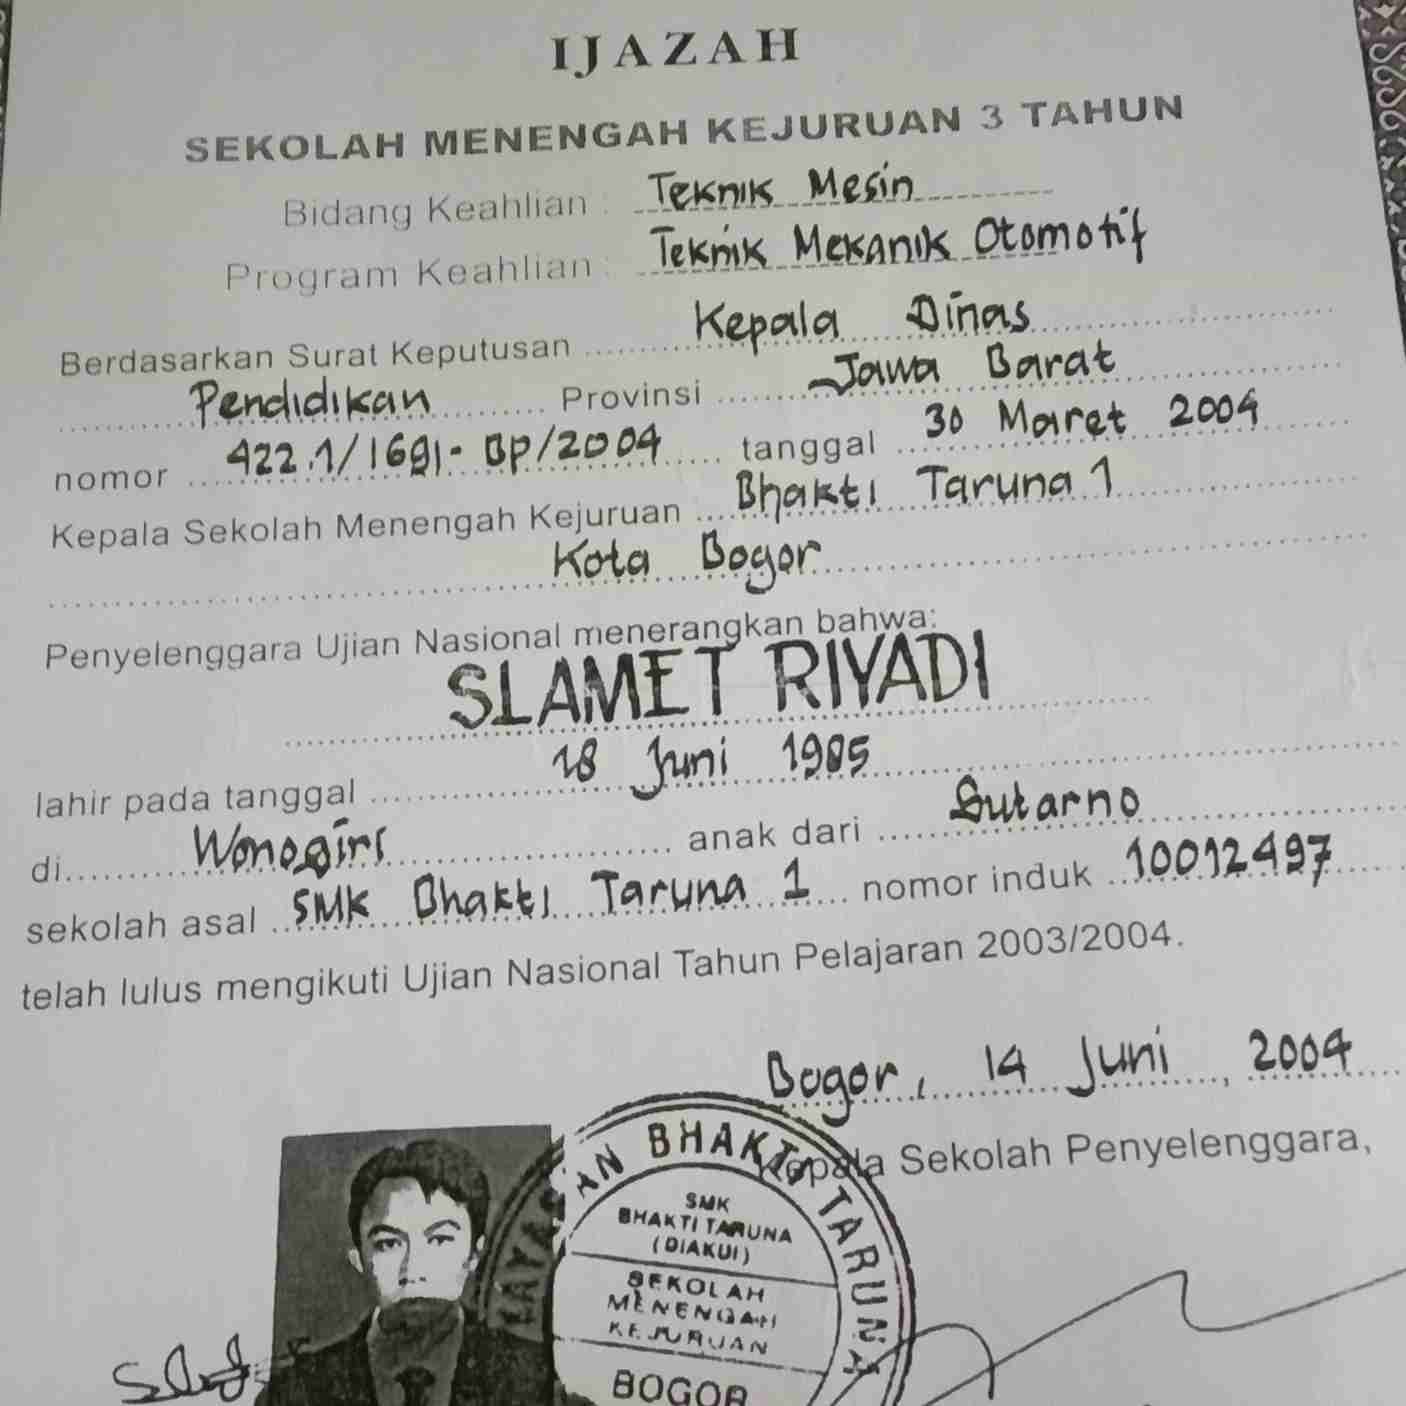 IJAZAH
SEKOLAH MENENGAH KEJURUAN 3 TAHUN
Bidang Keahlian : Teknik Mesin
Program Keahlian : Teknik Mekanik Otomotif
Berdasarkan Surat Keputusan Kepala Dinas
Pendidikan Provinsi Jawa Barat
nomor 422.1/1691-BP/2004 tanggal 30 Maret 2004
Kepala Sekolah Menengah Kejuruan Bhakti Taruna 1
Kota Bogor
Penyelenggara Ujian Nasional menerangkan bahwa:
SLAMET RIYADI
lahir pada tanggal 18 Juni 1985
di Wonogiri anak dari Sutarno
sekolah asal SMK Bhakti Taruna 1 nomor induk 10012497
telah lulus mengikuti Ujian Nasional Tahun Pelajaran 2003/2004.
Bogor, 14 Juni, 2004
Kepala Sekolah Penyelenggara,
YAYASAN BHAKTI TARUNA
SMK
BHAKTI TARUNA
(DIAKUI)
SEKOLAH
MENENGAH
KEJURUAN
BOGOR